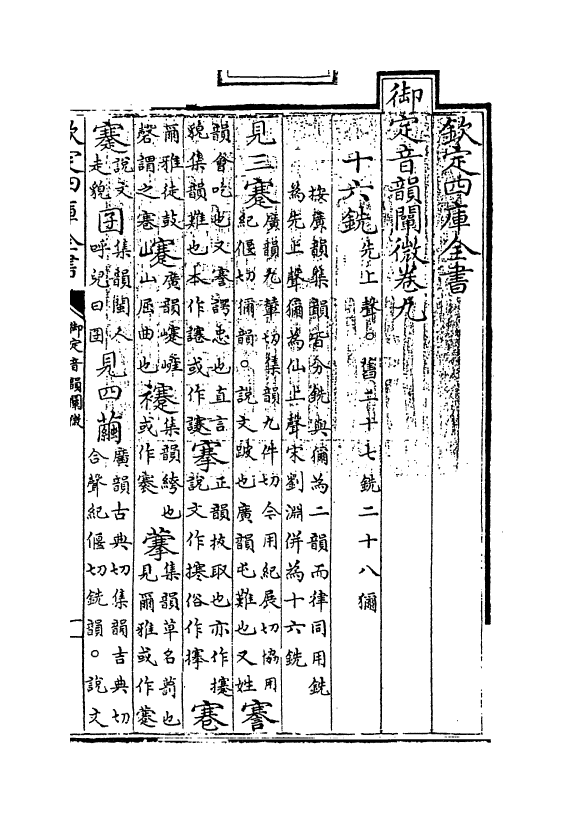 欽定四庫全書
御定音韻闡微卷九
十六銑先上聲○舊二十七銑二十八獮
按廣韻集韻皆分銑與獮為二韻而律同用銑
為先上聲獮為仙上聲宋劉淵併為十六銑
見三蹇廣韻九輦切集韻九件切今用紀展切協用
紀偃切獮韻○說文跛也廣韻屯難也又姓
謇
韻會吃也又謇諤忠也直言
貌集韻難也本作讒或作讓
搴正韻拔取也亦作攓
說文作㩃俗作㨜
寋
爾雅徒鼓
磬謂之寋
㠾廣韻㠾嵼
山屈曲也
褰集韻絝也
或作寋
藆集韻草名莔也
見爾雅或作蹇
蹇說文
走貌
囝集韻閩人
呼兒曰囝
見四繭廣韻古典切集韻吉典切
合聲紀偃切銑韻○說文
欽定四庫全書
御定音韻闡微
一